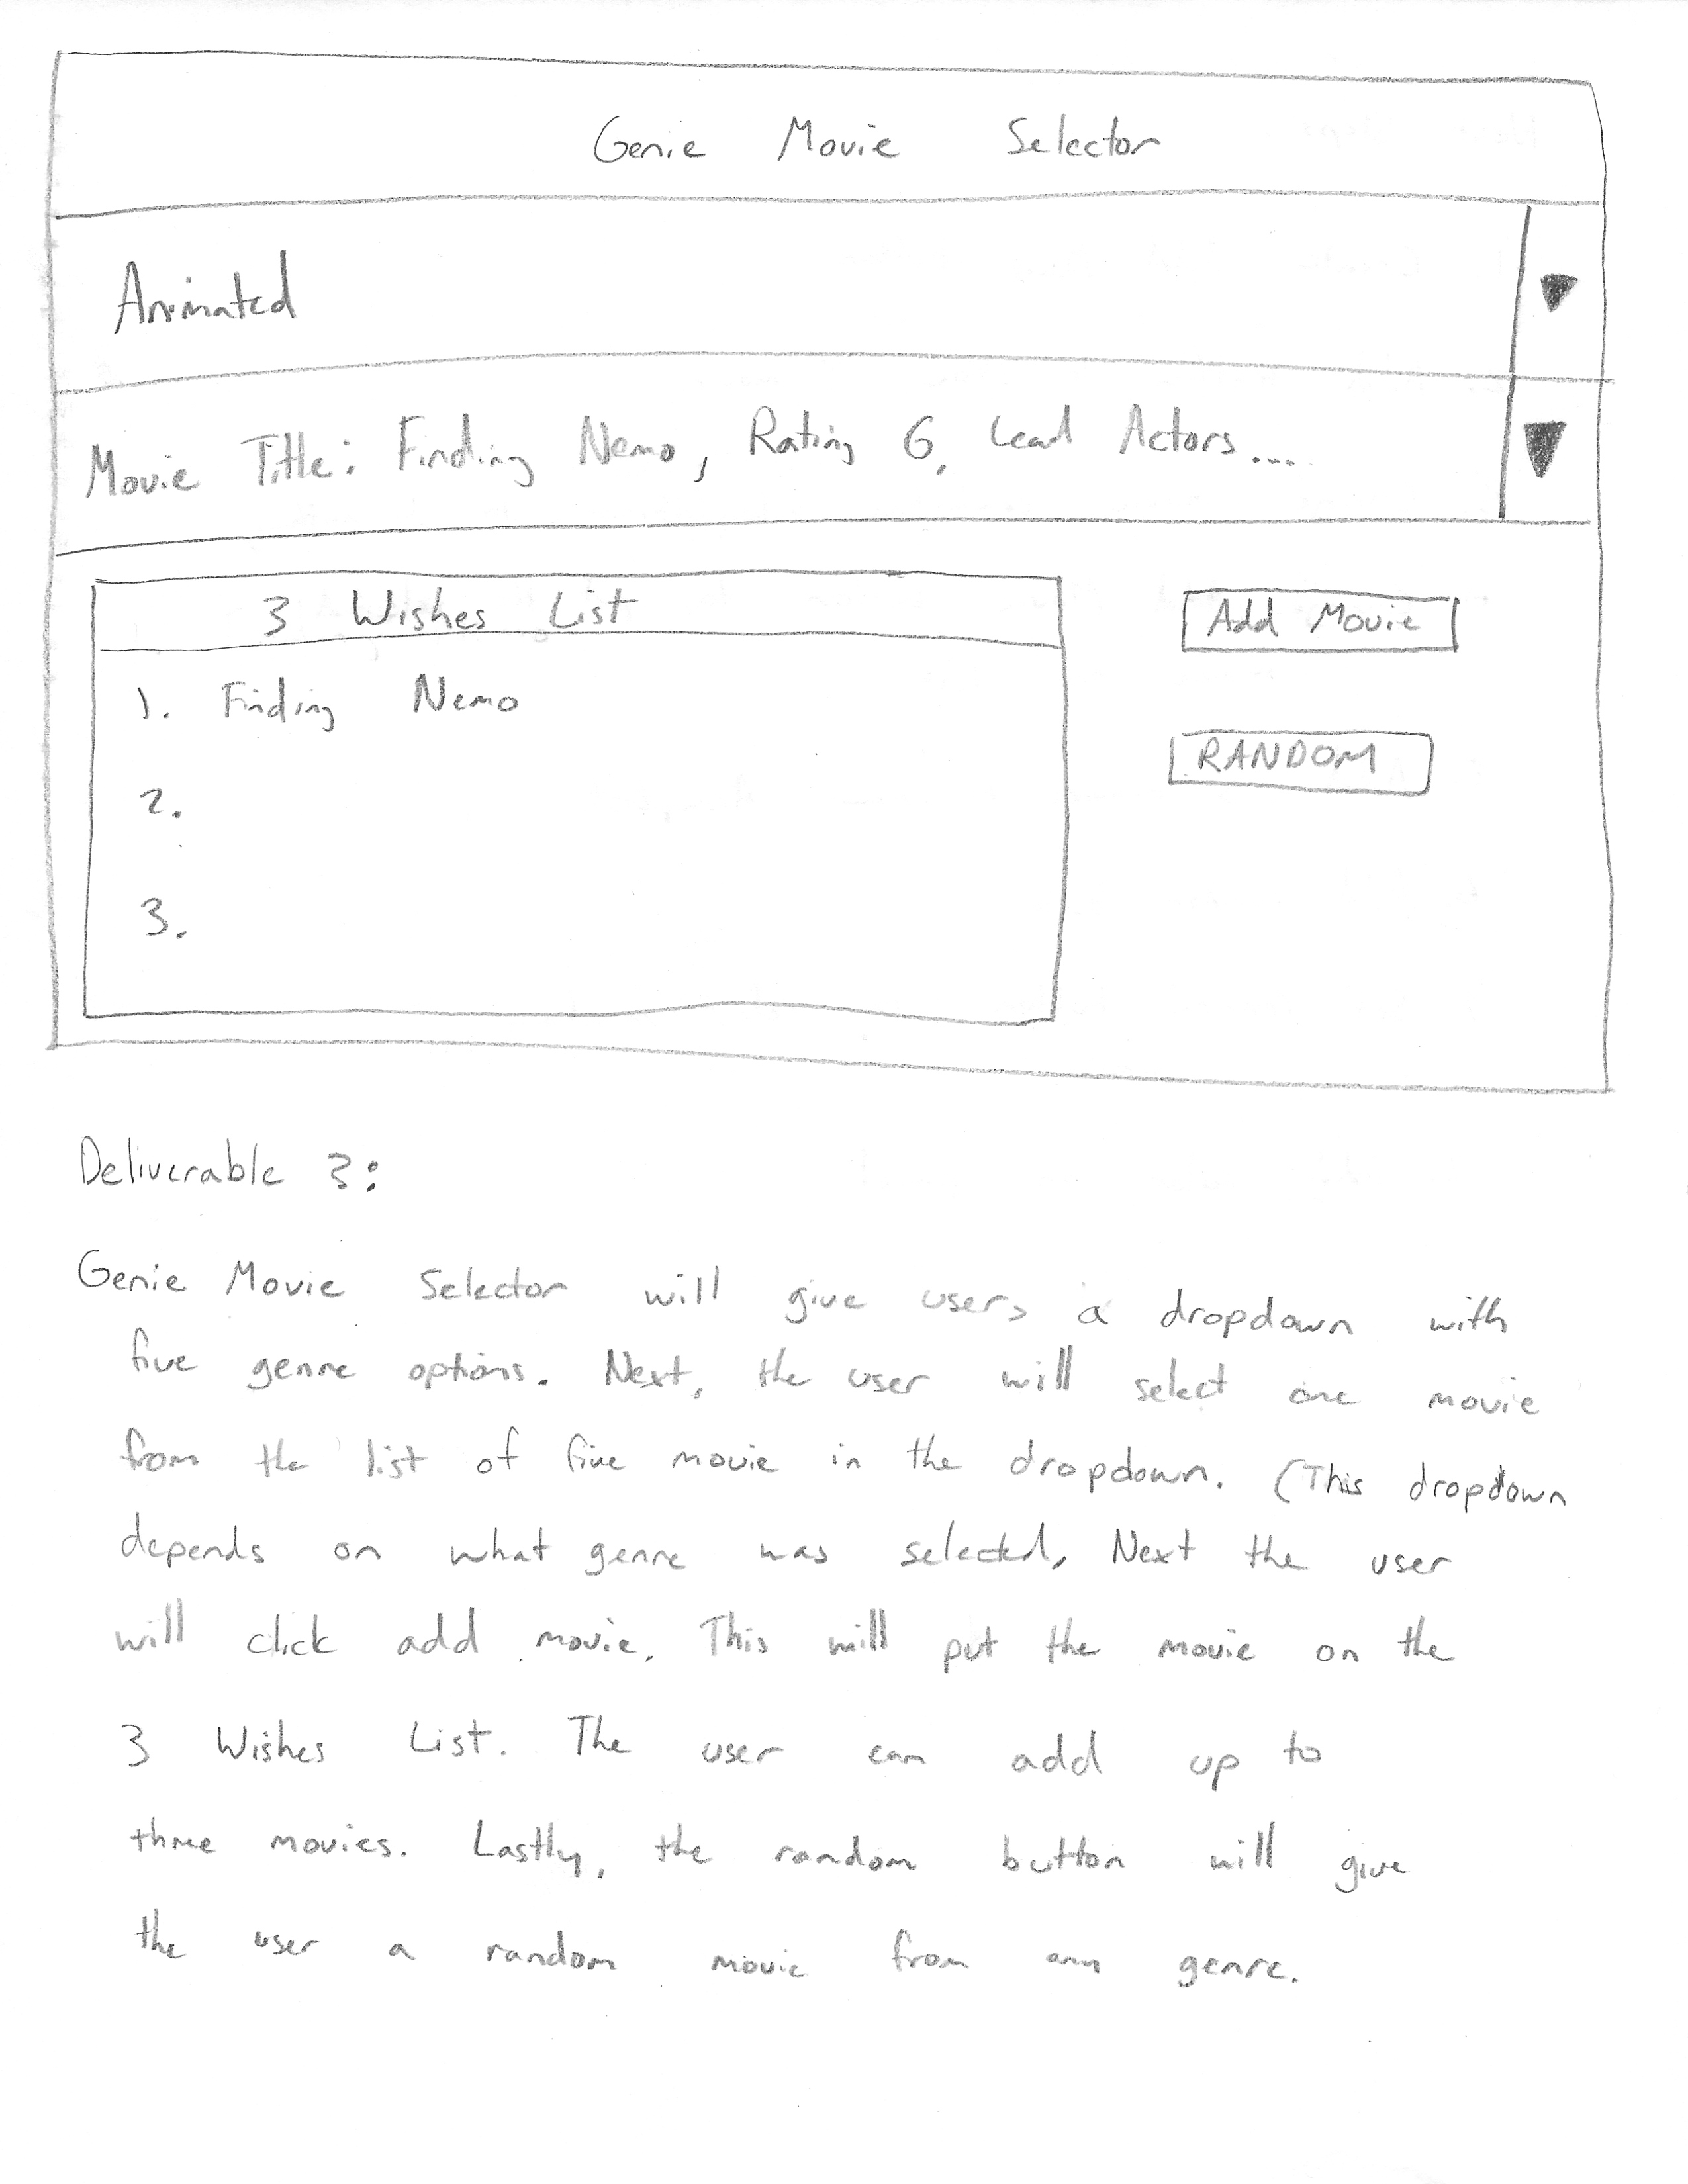 Genie Movie Selector
Animated
Movie Title: Finding Nemo, Rating G, Lead Actors...
3 Wishes List
Add Movie
1. Finding Nemo
RANDOM
2.
3.
Deliverable 3:
Genie Movie Selector will give users a dropdown with
five genre options. Next, the user will select one movie
from the list of five movie in the dropdown. (This dropdown
depends on what genre was selected. Next the user
will click add movie. This will put the movie on the
3 Wishes List. The user can add up to
three movies. Lastly, the random button will give
the user a random movie from any genre.